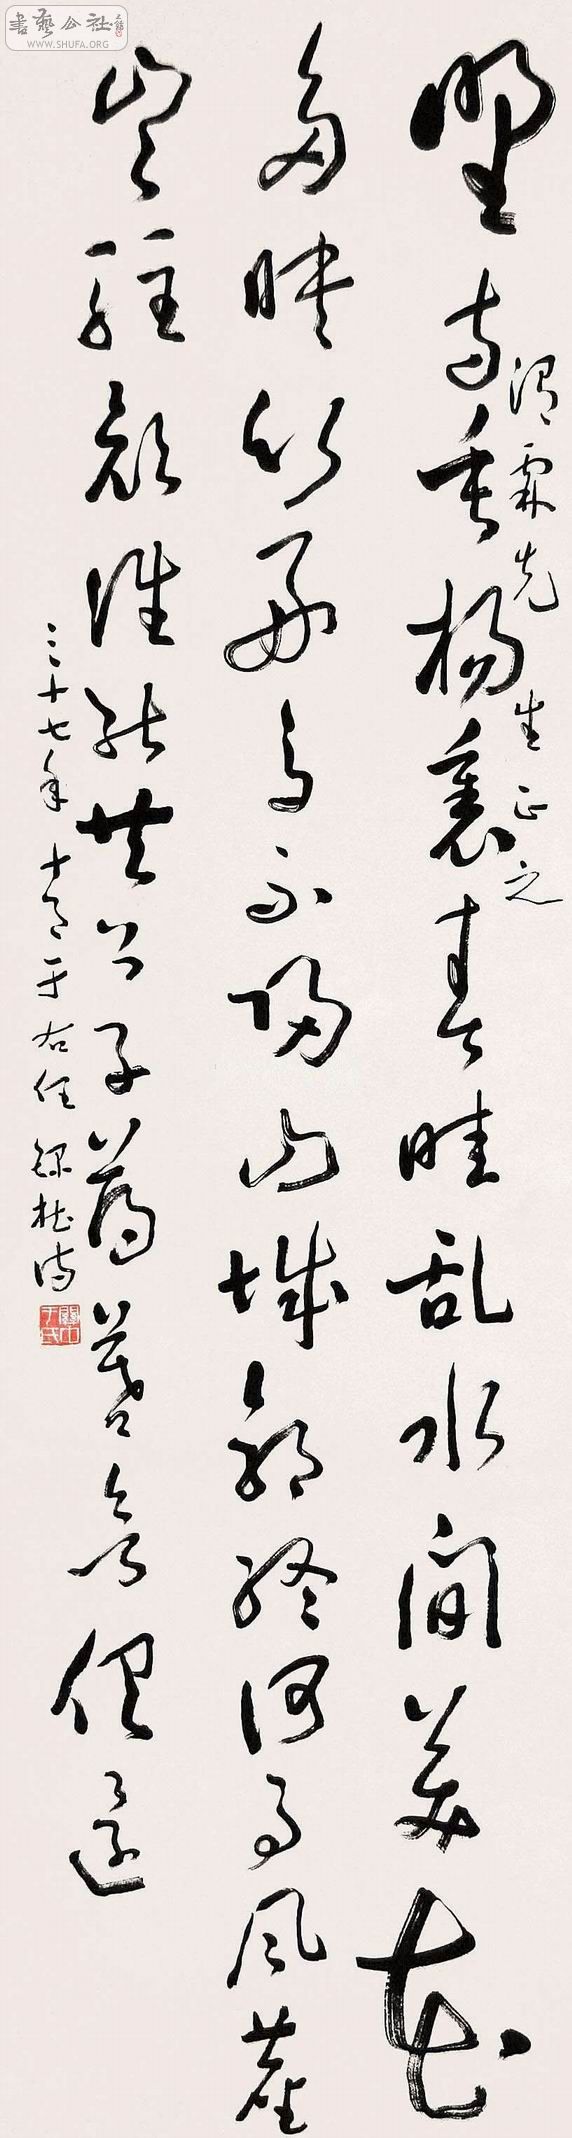 書藝公社
WWW.SHUFA.ORG
渭霖先生正之
野寺垂楊裏春畦乱水间美花
多映竹好鳥不歸山城郭終何事风塵
豈駐顏誰能共公子薄暮欲俱還
三十七年十月于右任録杜诗
關中于氏